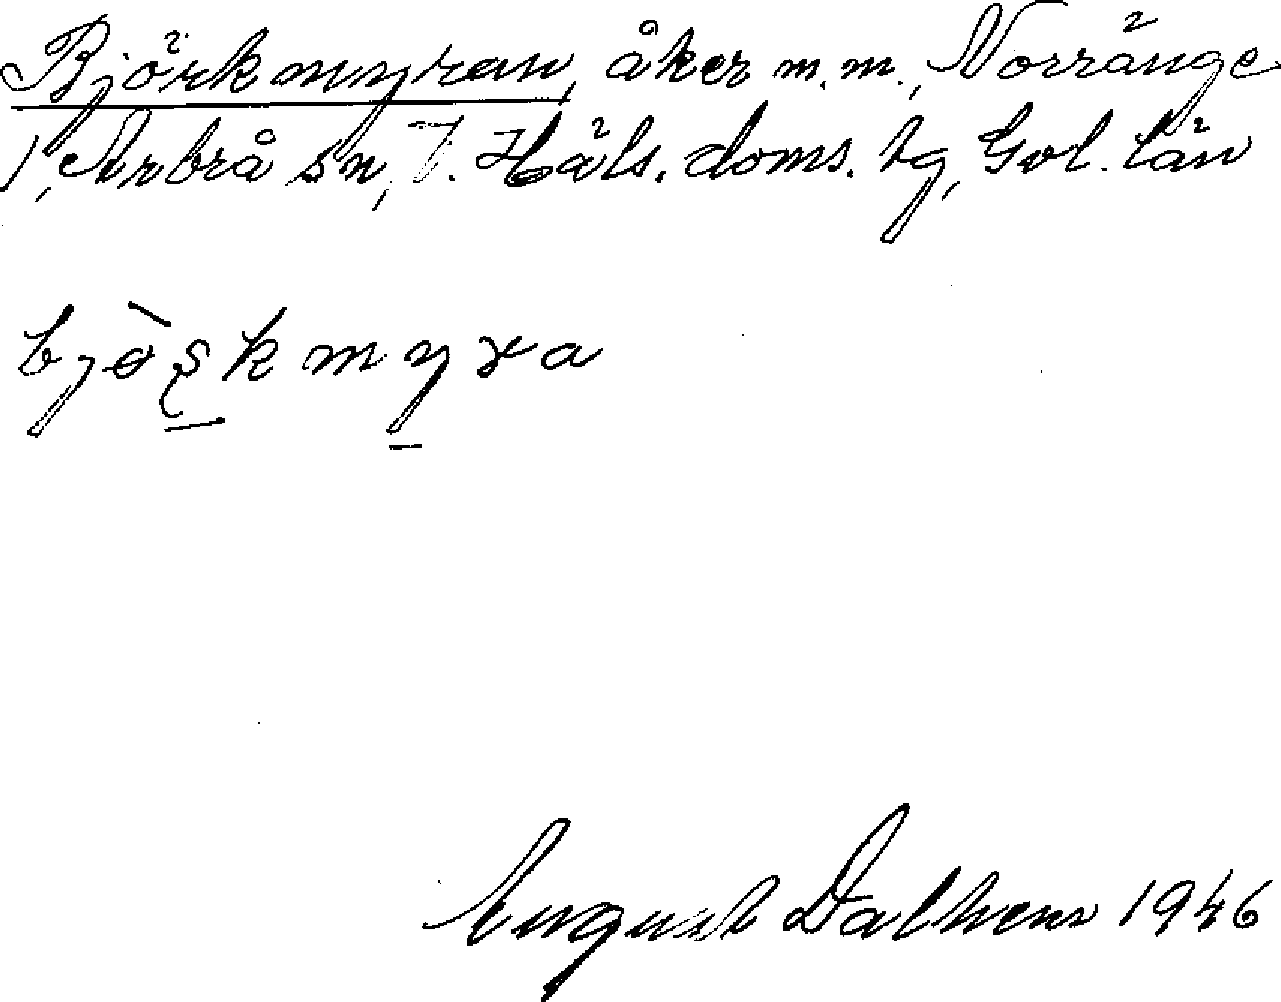 Björkmyran, åker m.m., Norränge
1, Arbrå sn, V. Häls. doms. tg, Gvl. län
bjòşkmyra
August Dalhens 1946